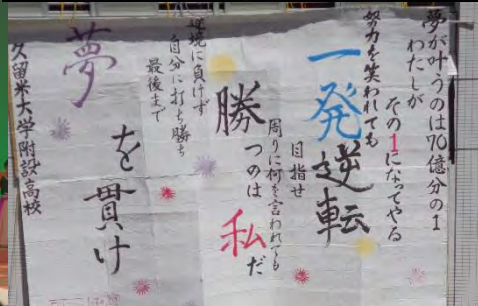 夢が叶うのは70億分の1
わたしが
その1になってやる
努力を笑われても
一発逆転
目指せ
周りに何を言われても
勝つのは私だ
逆境に負けず
自分に打ち勝ち
最後まで
夢を貫け
久留米大学附設高校